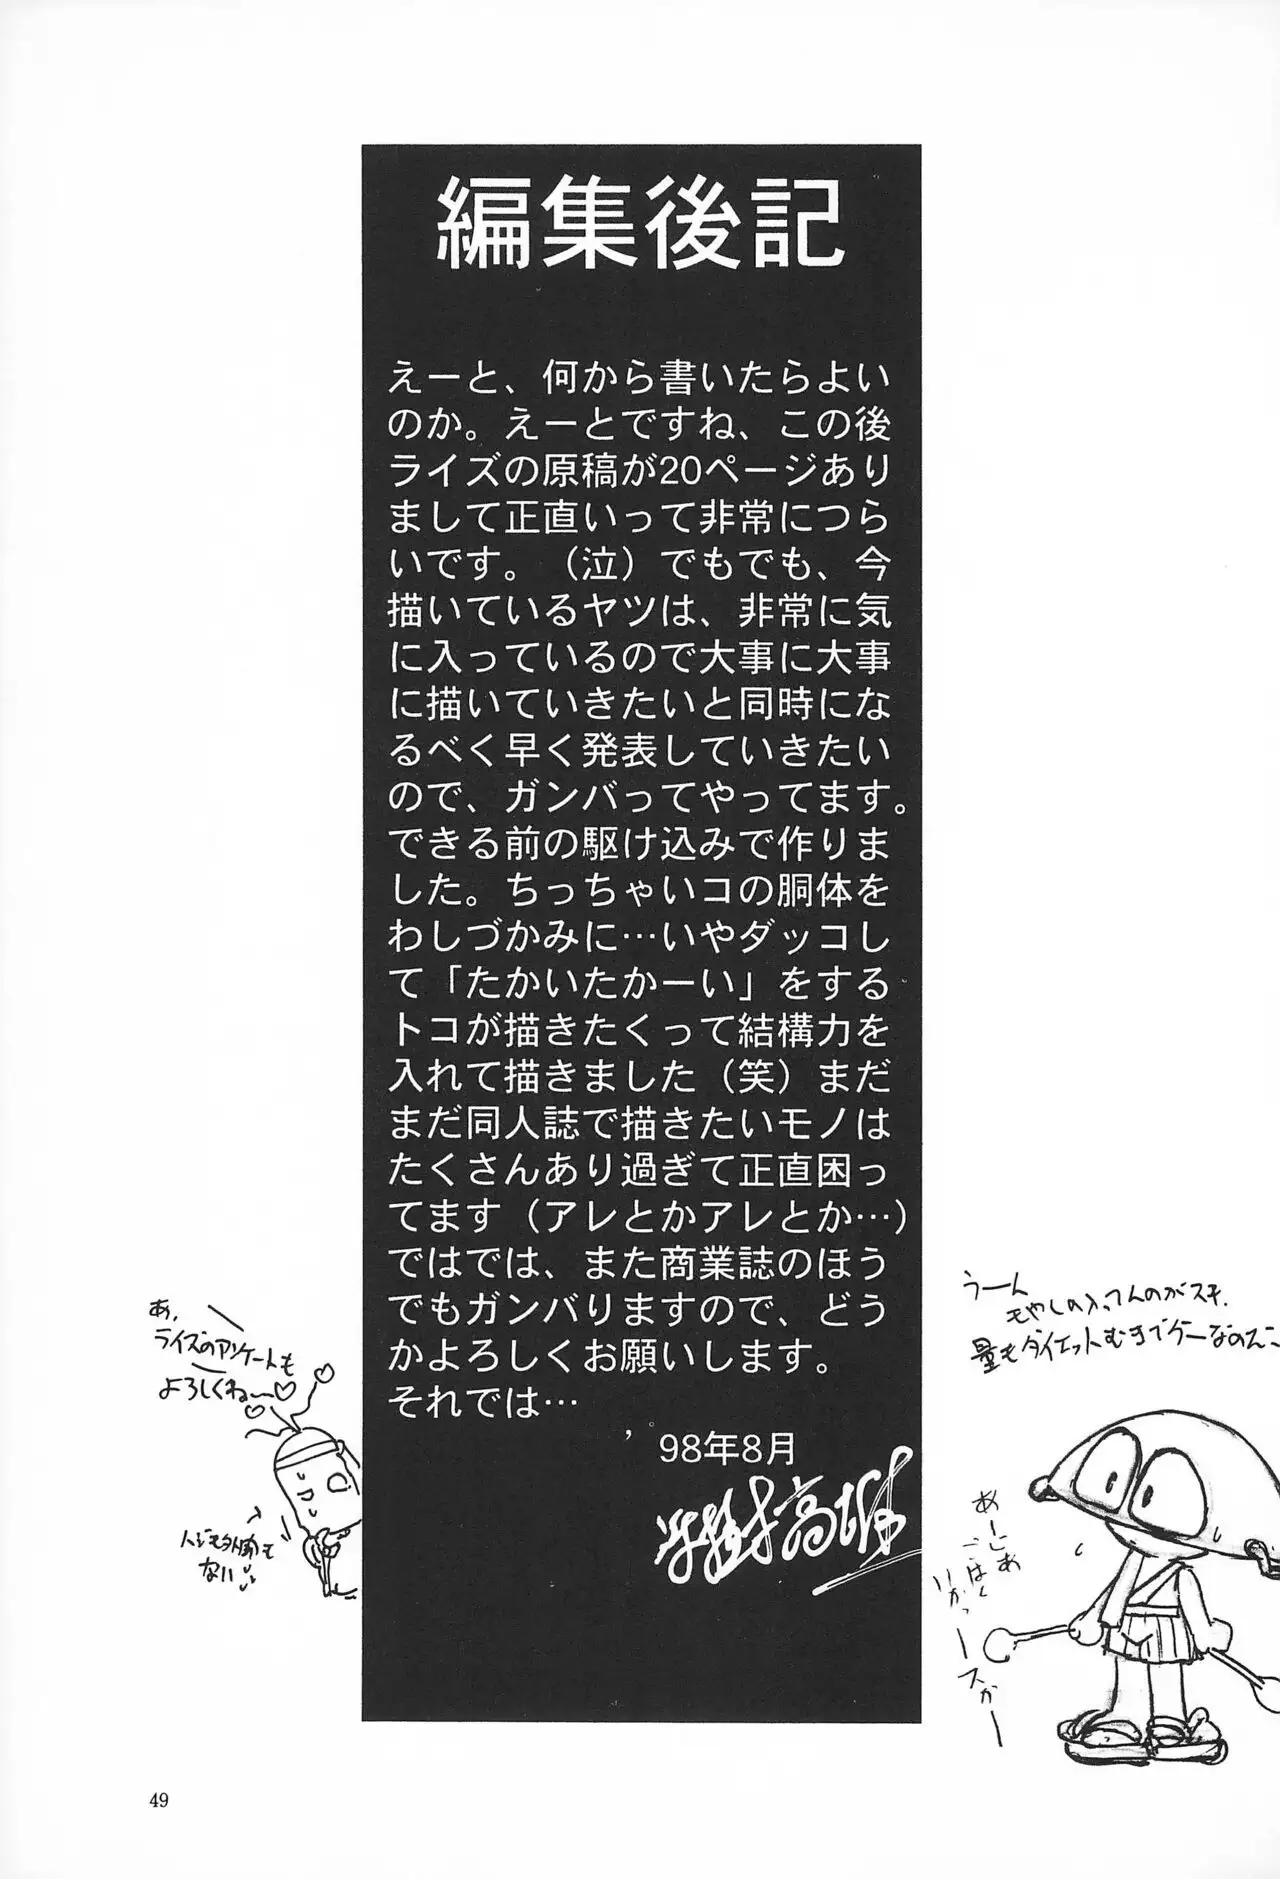 編集後記
えーと、何から書いたらよい
のか。えーとですね、この後
ライズの原稿が20ページあり
まして正直いって非常につら
いです。（泣）でもでも、今
描いているヤツは、非常に気
に入っているので大事に大事
に描いていきたいと同時にな
るべく早く発表していきたい
ので、ガンバってやってます。
できる前の駆け込みで作りま
した。ちっちゃいコの胴体を
わしづかみに…いやダッコし
て「たかいたかーい」をする
トコが描きたくって結構力を
入れて描きました（笑）まだ
まだ同人誌で描きたいモノは
たくさんあり過ぎて正直困っ
てます（アレとかアレとか…）
ではでは、また商業誌のほう
でもガンバりますので、どう
かよろしくお願いします。
それでは…
’98年8月
あ、
ライズのアンケートも
よろしくね〜♡
ない
うーん
もやしの入ってんのがスキ.
量もダイエットむきでグーなのねこ
49